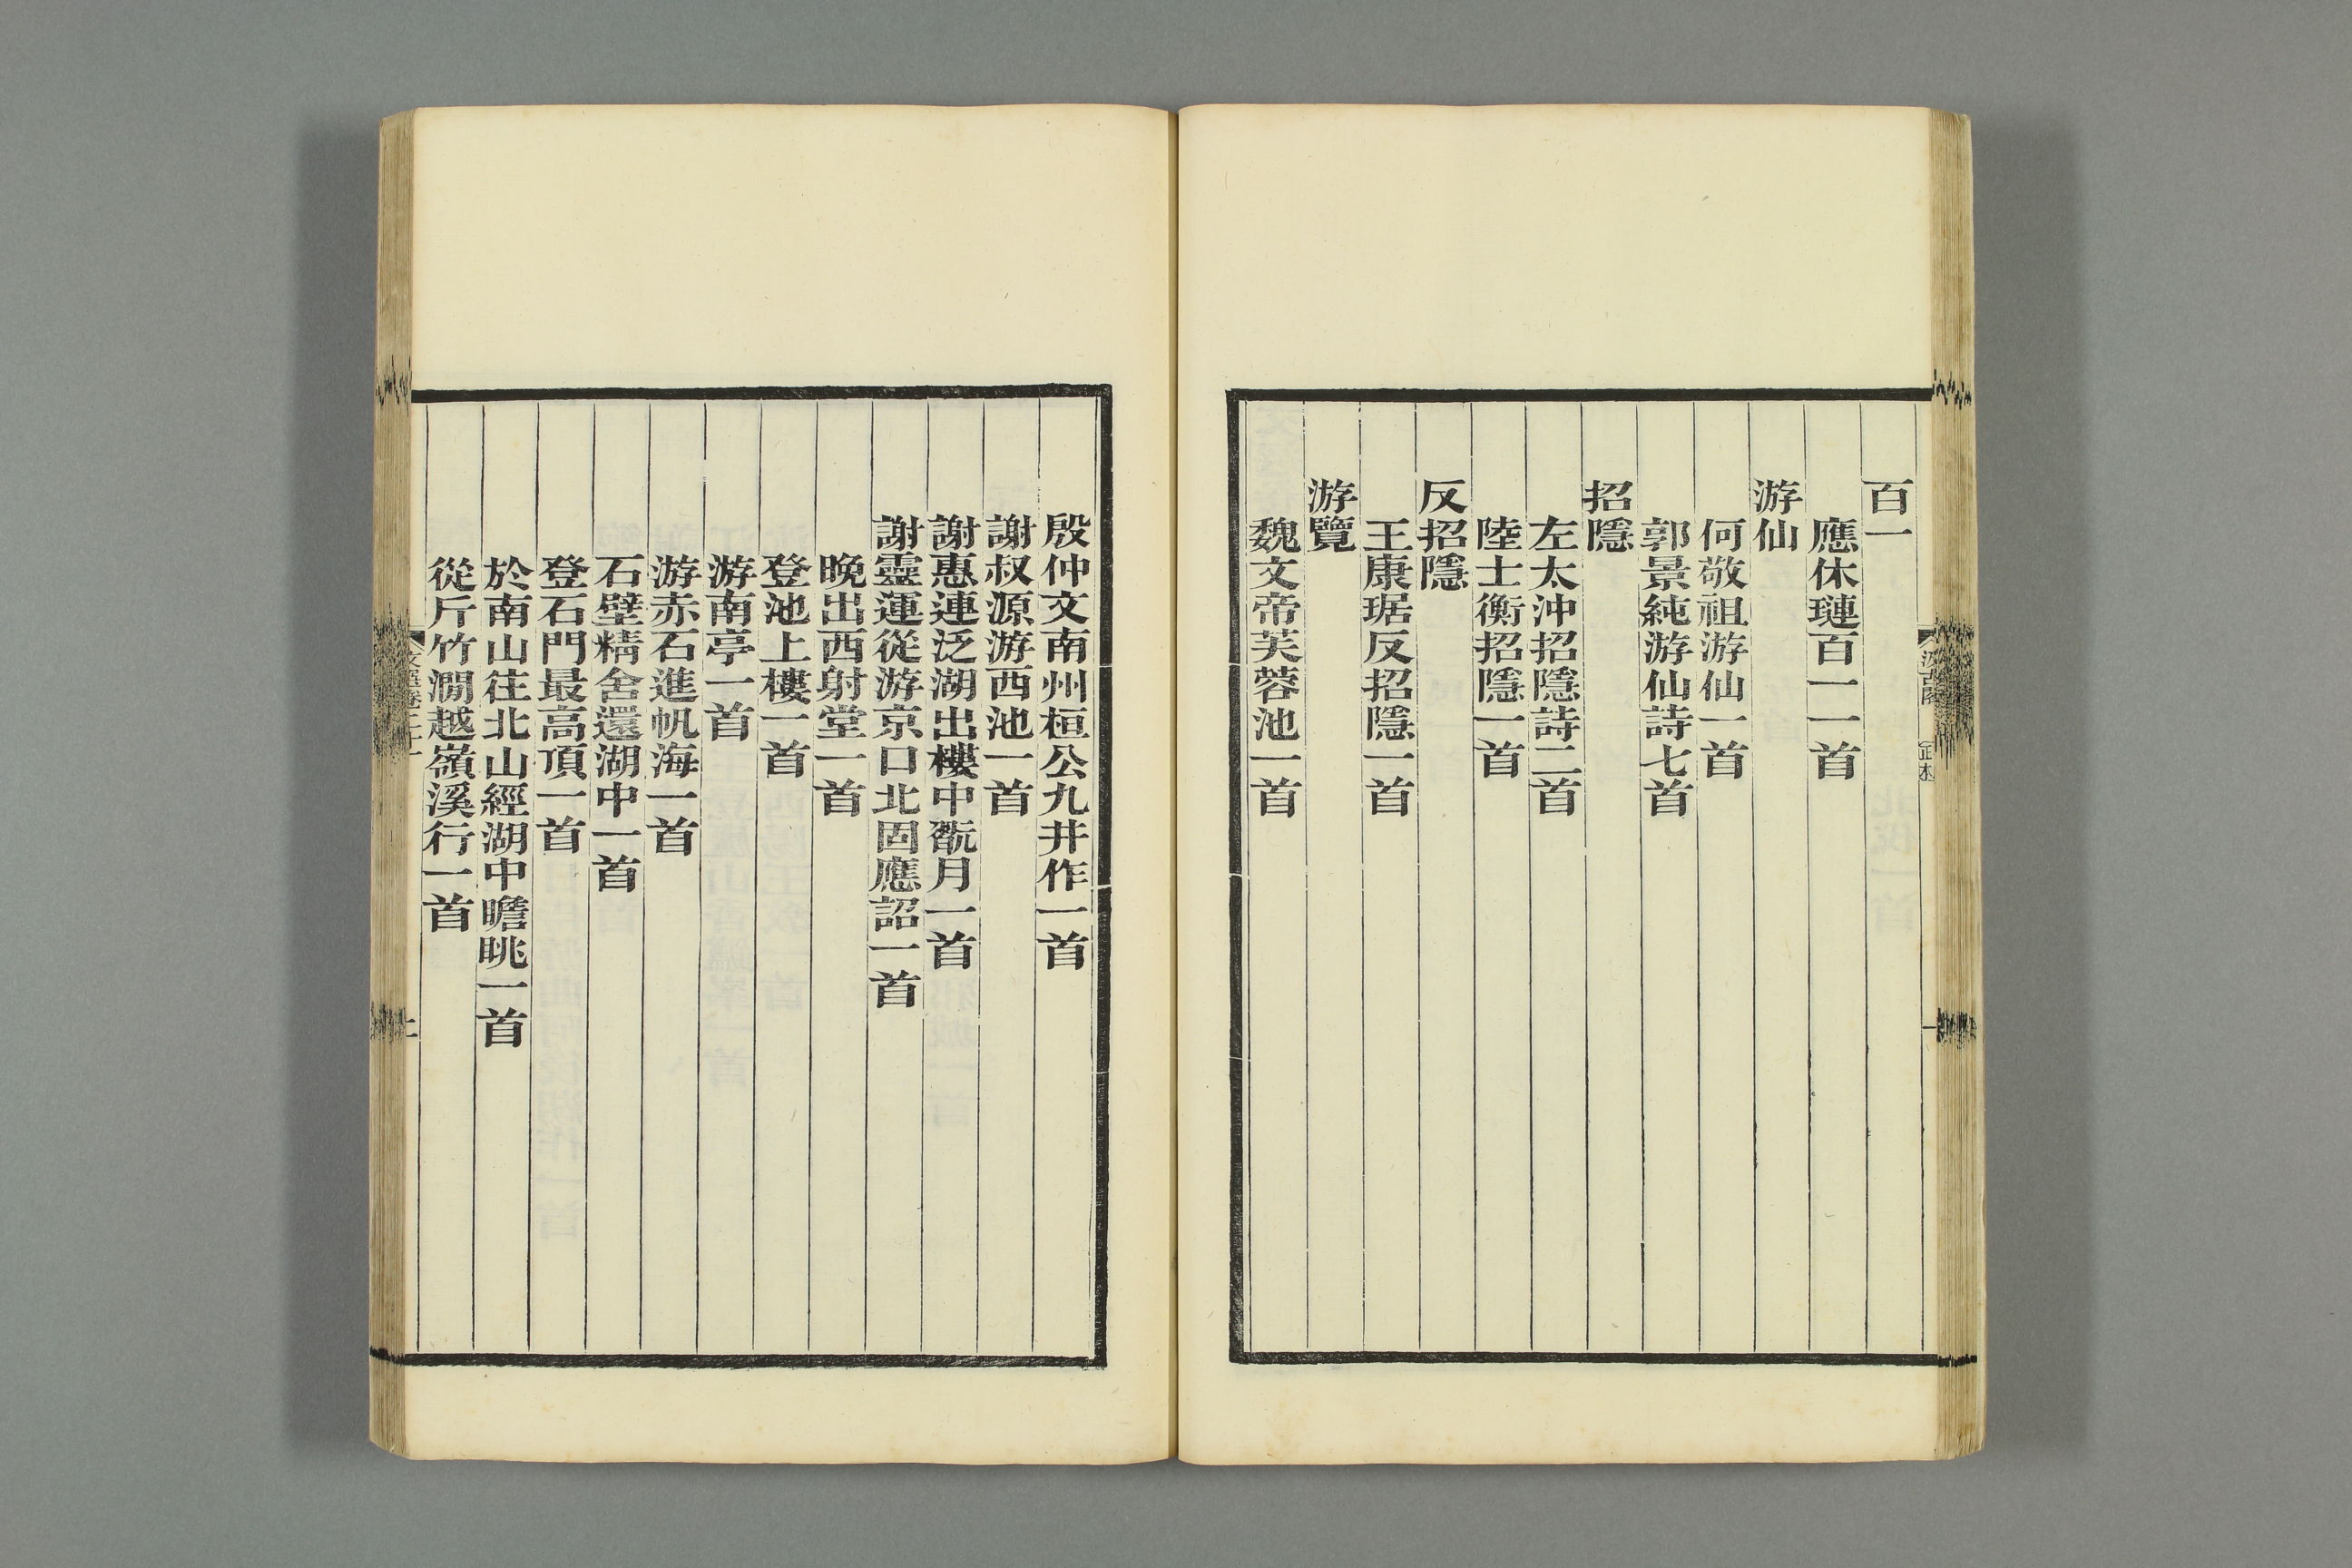 百一
應休璉百一一首
游仙
何敬祖游仙一首
郭景純游仙詩七首
招隱
左太沖招隱詩二首
陸士衡招隱一首
反招隱
王康琚反招隱一首
游覽
魏文帝芙蓉池一首
殷仲文南州桓公九井作一首
謝叔源游西池一首
謝惠連泛湖出樓中翫月一首
謝靈運從游京口北固應詔一首
晚出西射堂一首
登池上樓一首
游南亭一首
游赤石進帆海一首
石壁精舍還湖中一首
登石門最高頂一首
於南山往北山經湖中瞻眺一首
從斤竹澗越嶺溪行一首